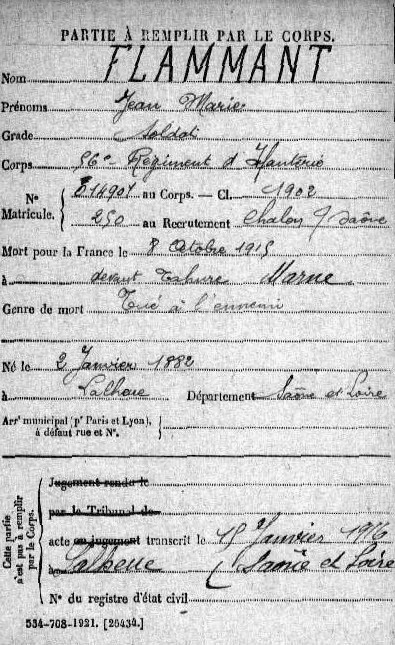 PARTIE À REMPLIR PAR LE CORPS.
Nom FLAMMANT
Prénoms Jean Marie
Grade Soldat
Corps 56e Régiment d'Infanterie
N° Matricule. 014907 au Corps. — Cl. 1902
250 au Recrutement Chalon s/ Saône
Mort pour la France le 8 Octobre 1915
à devant Tahure Marne
Genre de mort Tué à l'ennemi
Né le 2 Janvier 1882
à Département Saône et Loire
Arrt municipal (pr Paris et Lyon), à défaut rue et N°.
Cette partie n'est pas à remplir par le Corps.
Jugement rendu le
par le Tribunal de
acte ou jugement transcrit le 15 Janvier 1916
à (Saône et Loire
N° du registre d'état civil
534-708-1921. [26434.]